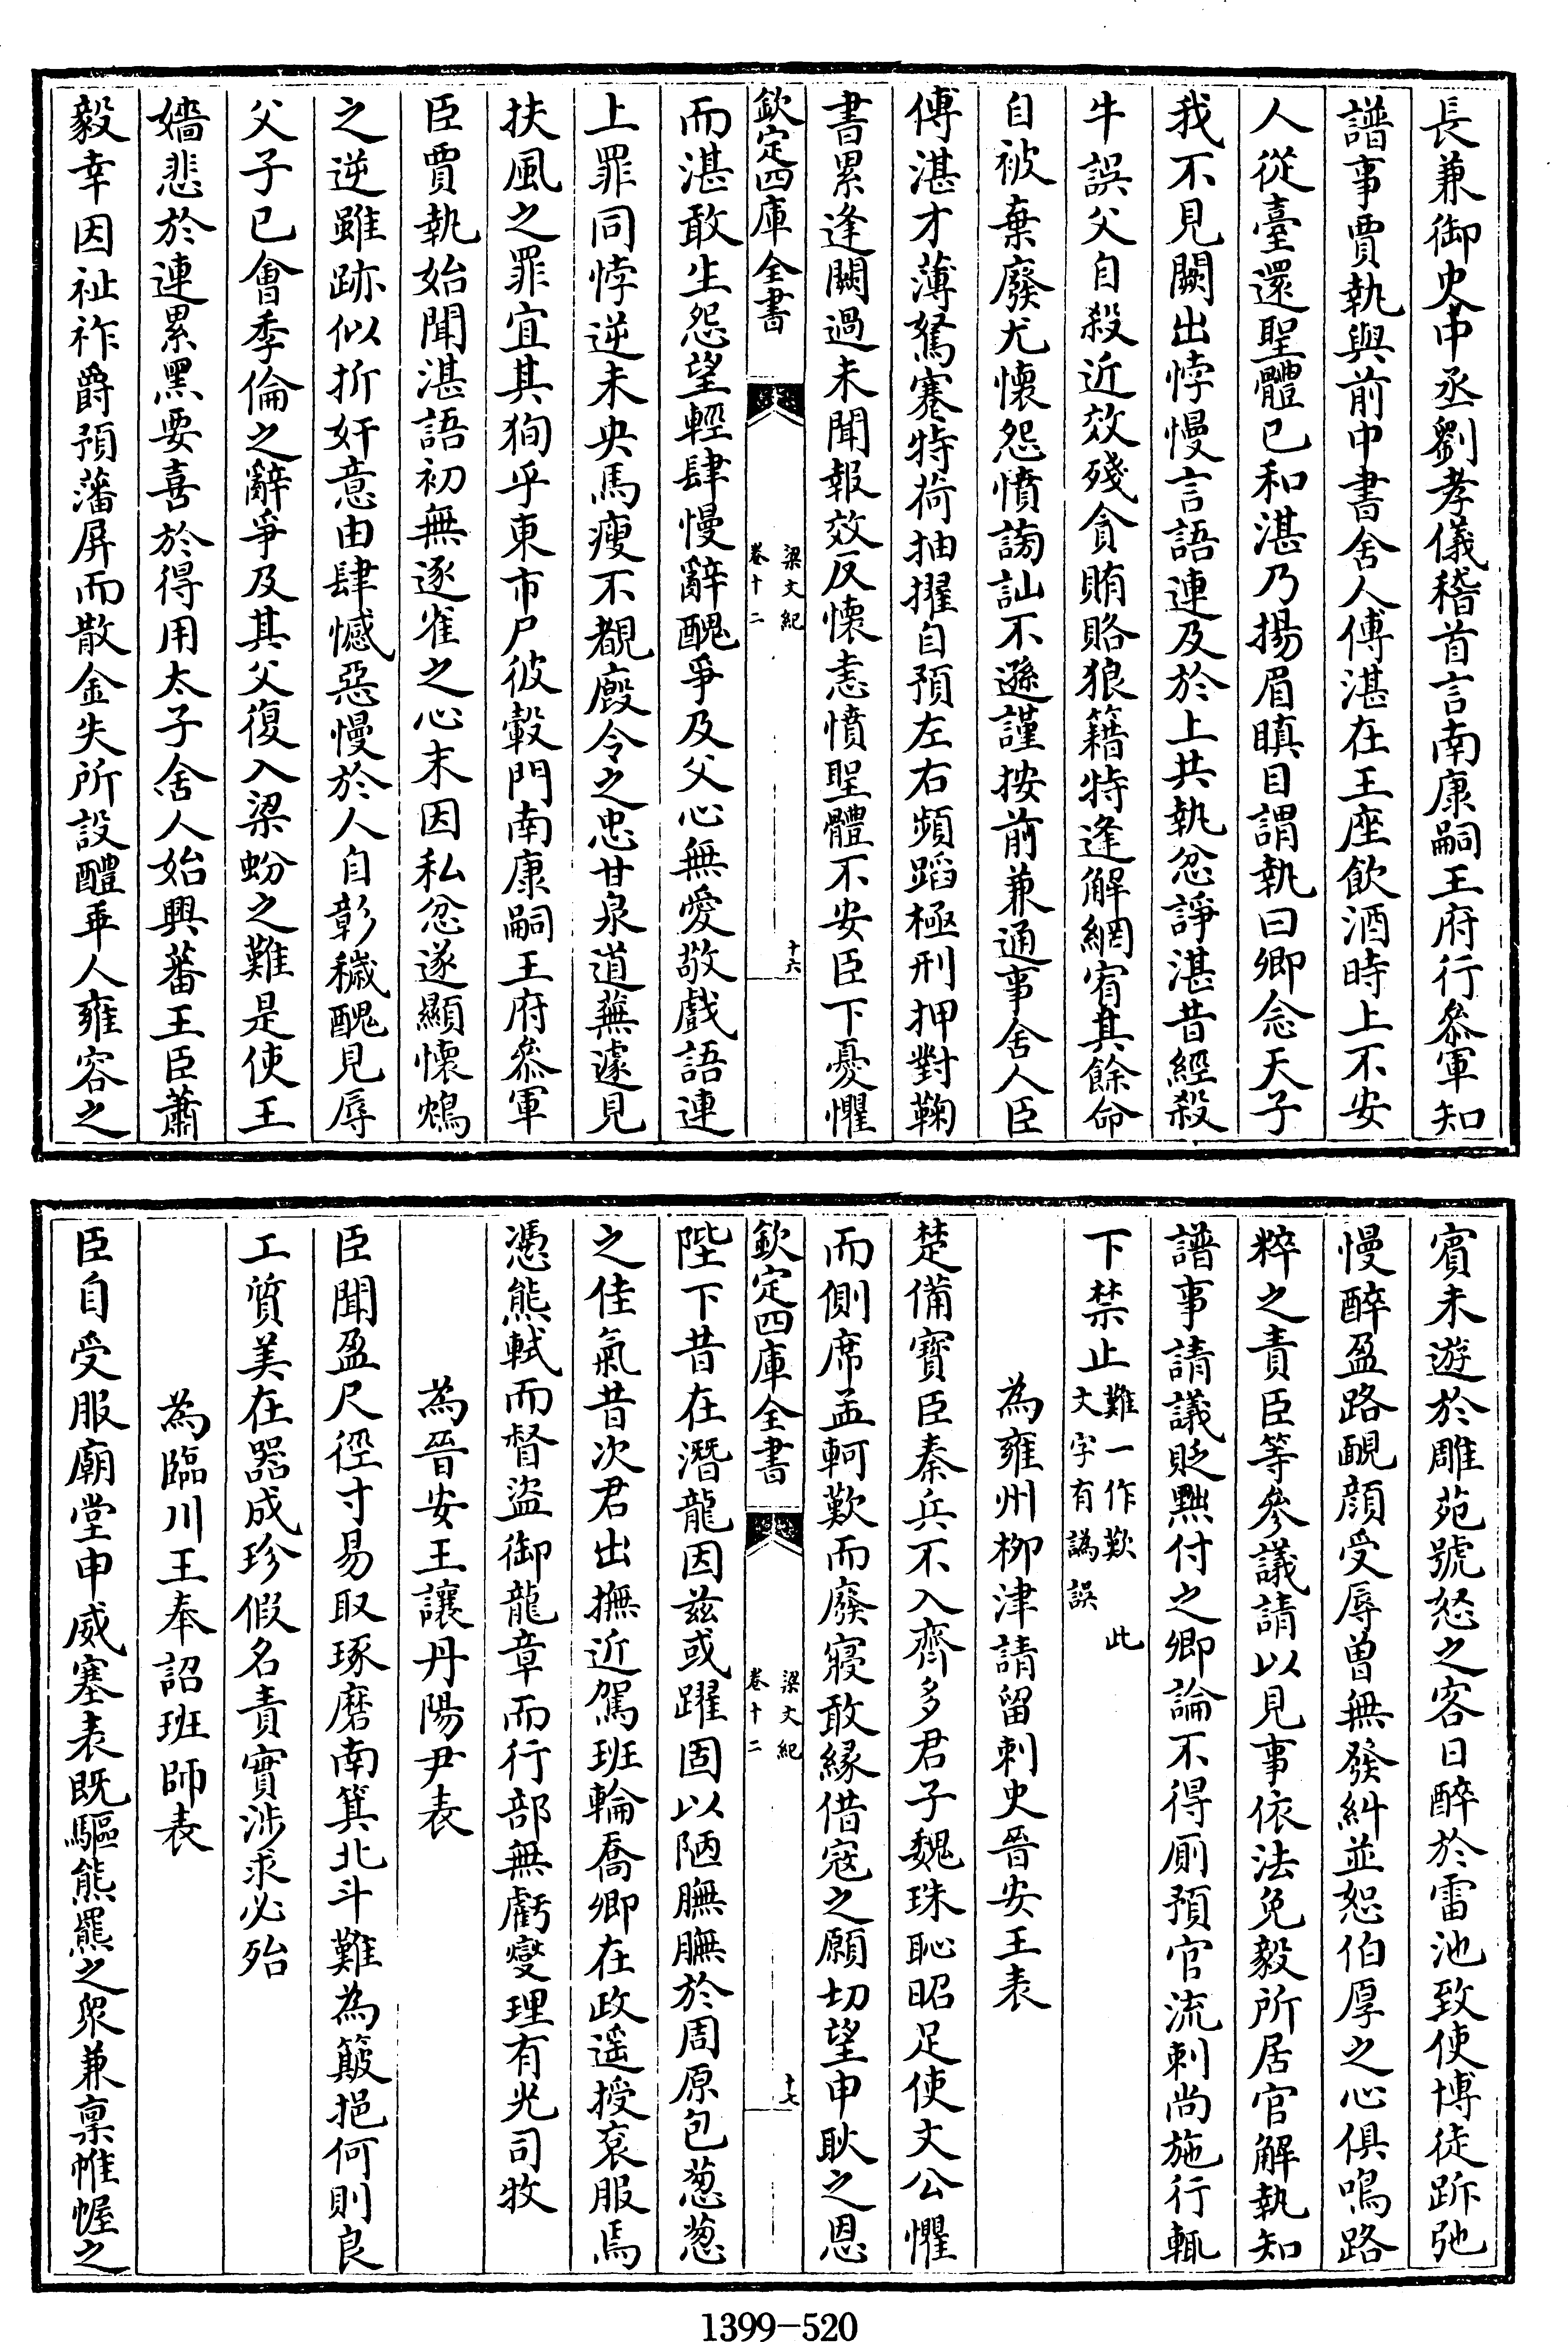 長兼御史中丞劉孝儀稽首言南康嗣王府行叅軍知
譜事賈執與前中書舍人傅湛在王座飲酒時上不安
人從臺還聖體已和湛乃揚眉瞋目謂執曰卿念天子
我不見闕出悖慢言語連及於上共執忿諍湛昔經殺
牛誤父自殺近效殘貪賄賂狼籍特逢解網宥其餘命
自被棄廢尤懷怨憤謗訕不遜謹按前兼通事舍人臣
傅湛才薄駑蹇特荷抽擢自預左右頻蹈極刑押對鞠
書累逢闕過未聞報效反懷恚憤聖體不安臣下憂懼
欽定四庫全書 梁文紀 卷十二 十六
而湛敢生怨望輕肆慢辭醜爭及父心無愛敬戲語連
上罪同悖逆未央馬瘦不覩廏令之忠甘泉道蕪遽見
扶風之罪宜其狥乎東市尸彼轂門南康嗣王府叅軍
臣賈執始聞湛語初無逐雀之心末因私忿遂顯懷鴆
之逆雖跡似折奸意由肆憾惡慢於人自彰穢醜見辱
父子已會季倫之辭爭及其父復入梁蚡之難是使王
嬙悲於連累黑要喜於得用太子舍人始興蕃王臣蕭
毅幸因祉祚爵預藩屏而散金失所設醴乖人雍容之
賓未遊於雕苑號怒之客日醉於雷池致使博徒跅弛
慢醉盈路靦顔受辱曽無發糾並恕伯厚之心俱鳴路
粹之責臣等參議請以見事依法免毅所居官解執知
譜事請議貶黜付之卿論不得厠預官流刺尚施行輒
下禁止難一作歎 此文字有譌誤
為雍州柳津請留刺史晉安王表
楚備寶臣秦兵不入齊多君子魏珠恥昭足使文公懼
而側席孟軻歎而廢寢敢緣借寇之願切望申耿之恩
欽定四庫全書 梁文紀 卷十二 十七
陛下昔在潛龍因兹或躍固以陋膴膴於周原包葱葱
之佳氣昔次君出撫近駕班輪喬卿在政遥授衮服焉
憑熊軾而督盜御龍章而行部無虧燮理有光司牧
為晉安王讓丹陽尹表
臣聞盈尺徑寸易取琢磨南箕北斗難為簸挹何則良
工質美在器成珍假名責實涉求必殆
為臨川王奉詔班師表
臣自受服廟堂申威塞表既驅熊羆之衆兼稟帷幄之
1399-520